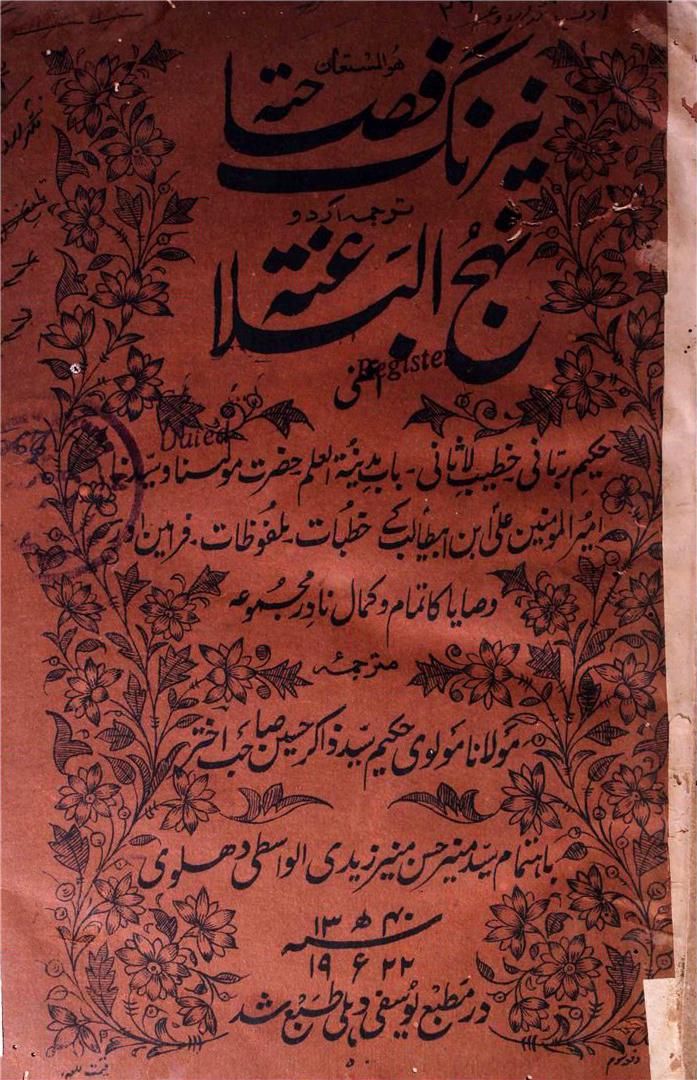 هو المستعان
نیرنگ فصاحتہ
ترجمہ اردو
نہج البلاغتہ
Register
یعنی
Dated
حکیم ربانی۔ خطیب لاثانی۔ باب مدینۃ العلم حضرت مولٰنا و سیدنا
امیر المومنین علی ابن ابیطالب کے خطبات۔ ملفوظات۔ فرامین اور
وصایا کا تمام و کمال نادر مجموعہ
مترجمۂ
مولانا مولوی حکیم سید ذاکر حسین صاحب اختر
باہتمام سید منیر حسن منیر زیدی الواسطی دھلوی
سنہ ۱۳۴۰ھ
۱۹۲۲ء
در مطبع یوسفی دہلی طبع شد
دفعہ سوم
قیمت